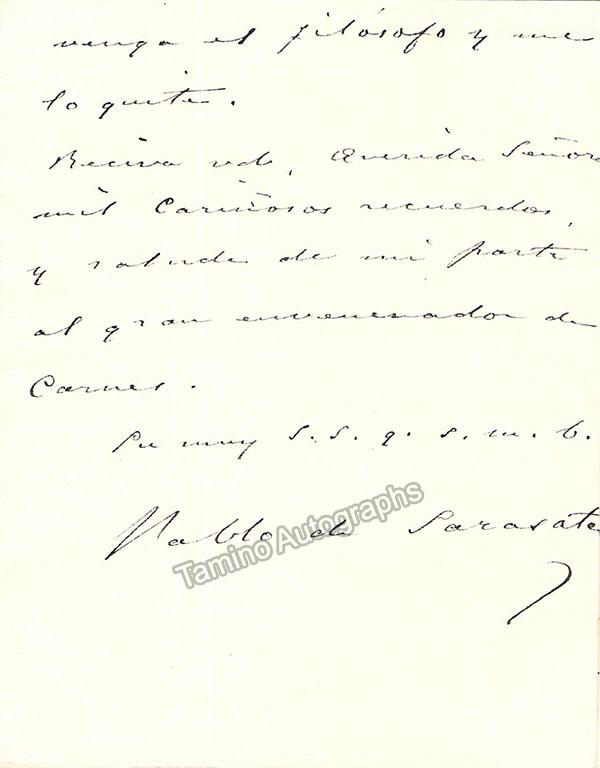 venga el filósofo y me
lo quite.
Reciva vd, Querida Señora
mil Cariñosos recuerdos,
y salude de mi parte
al gran envenenador de
Carnes.
Su muy S. S. q. s. m. b.
Pablo de Sarasate
Tamino Autographs